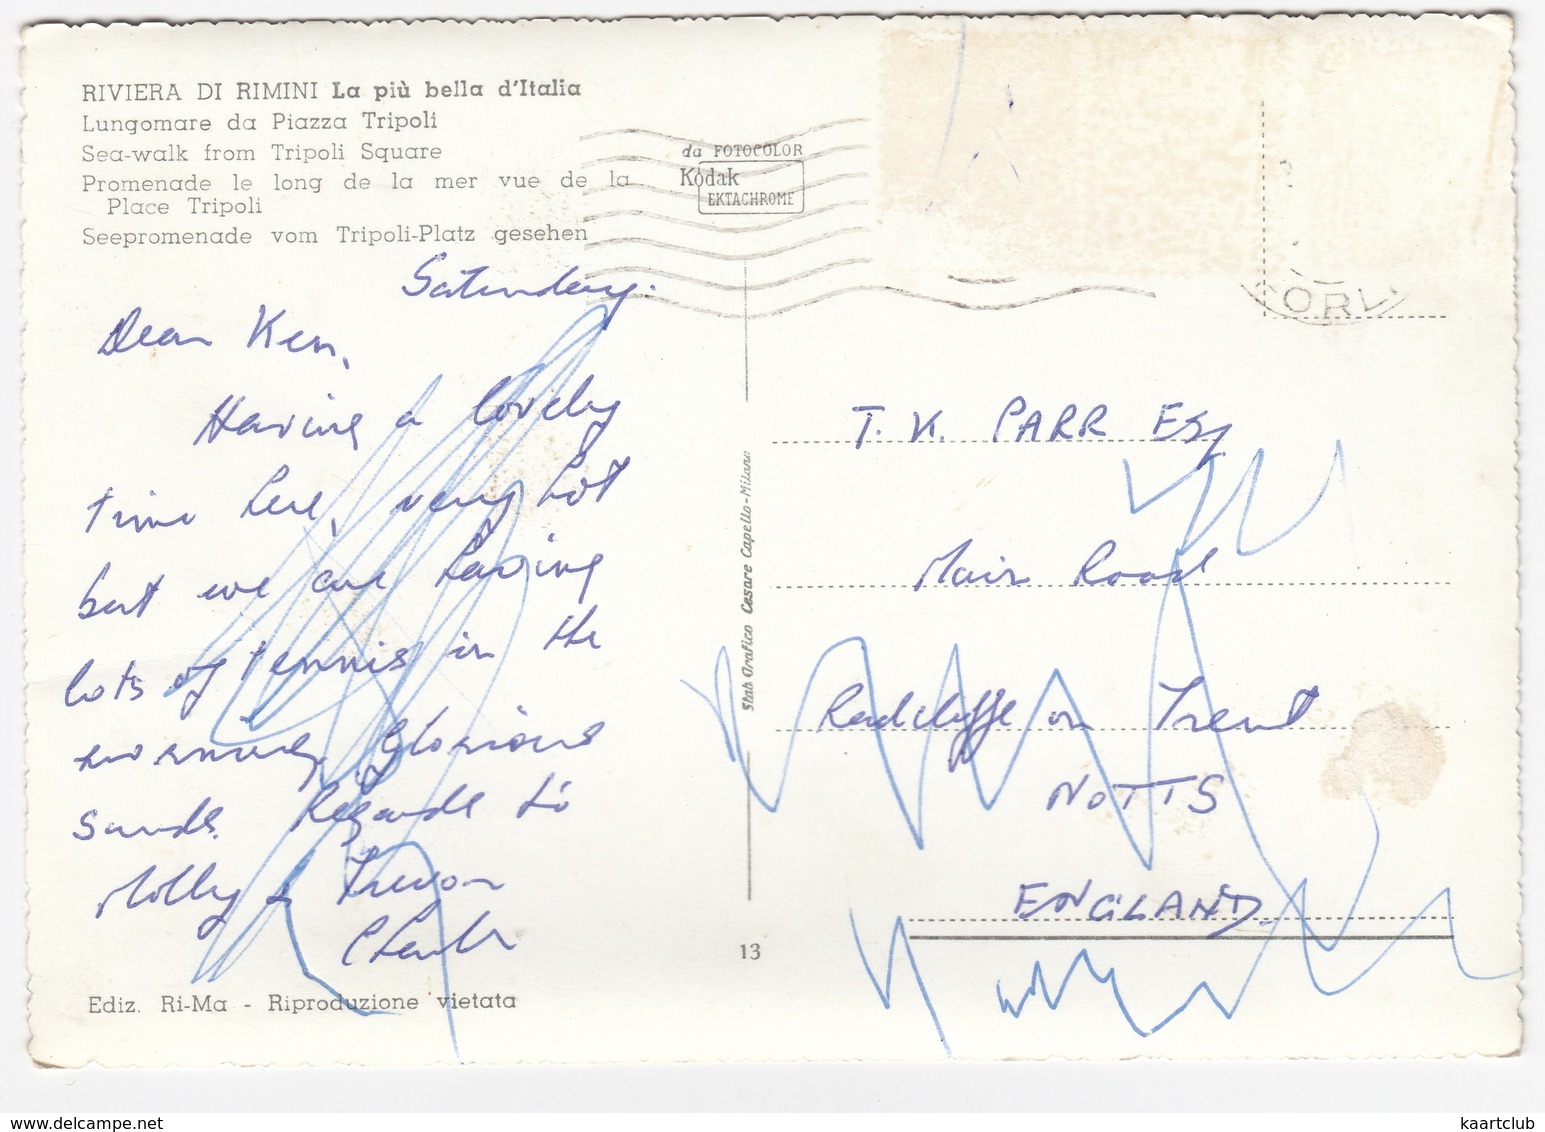 RIVIERA DI RIMINI La più bella d'Italia
Lungomare da Piazza Tripoli
Sea-walk from Tripoli Square
Promenade le long de la mer vue de la
Place Tripoli
Seepromenade vom Tripoli-Platz gesehen
da FOTOCOLOR
Kodak
EKTACHROME
ORV
Saturday.
Dear Ken,
Having a lovely
time here, very hot
but we are having
lots of tennis in the
evening. Glorious
sands. Regards to
Molly & Trevor
T. K. PARR ESq
Main Road
Radcliffe on Trent
NOTTS
ENGLAND.
Stab Grafico Cesare Capello-Milano
13
Ediz. Ri-Ma - Riproduzione vietata
www.delcampe.net
kaartclub